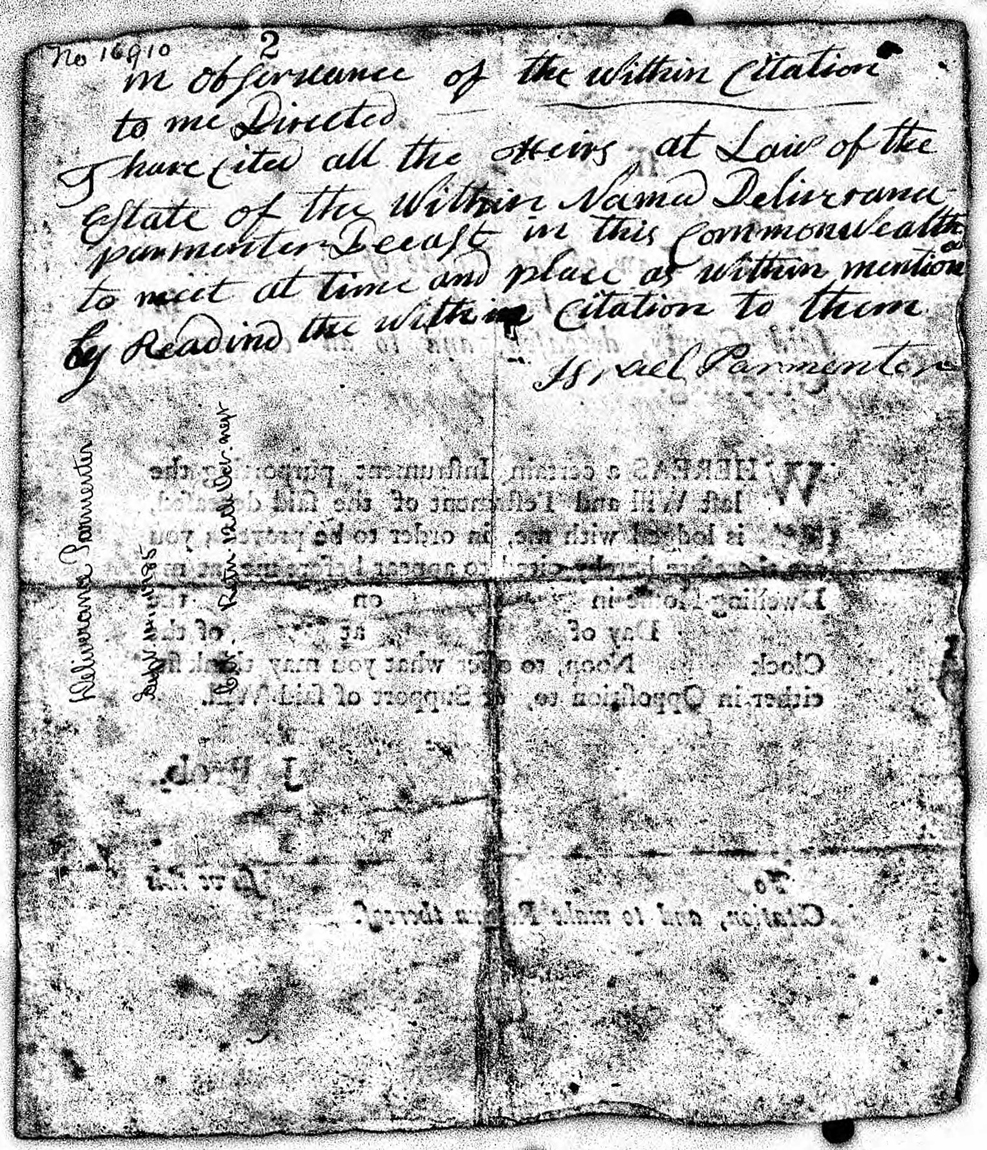 No 16910
2
in obserueance of the within Citation
to me Directed
I have Cited all the Heirs at Law of the
Estate of the Within Named Deliverance
parmenter Deceast in this Commonwealth
to meet at time and place as within mention
ed
by Readind the within Citation to them
Israel Parmenter
Deliverance Parmenter
WHEREAS a certain Instrument purporting the
last Will and Testament of the said deceased,
is lodged with me, in order to be proved; you
are therefore hereby cited to appear before me at my
Dwelling-House in on the
Day of at of the
Clock Noon, to offer what you may think fit
either in Opposition to, or Support of said Will.
J. Prob.
To serve this
Citation, and to make Return thereof.